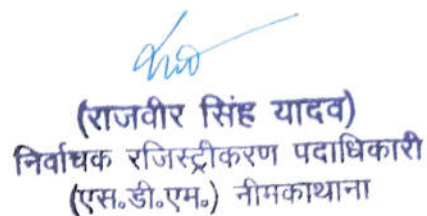 (राजवीर सिंह यादव)
निर्वाचक रजिस्ट्रीकरण पदाधिकारी
(एस.डी.एम.) नीमकाथाना